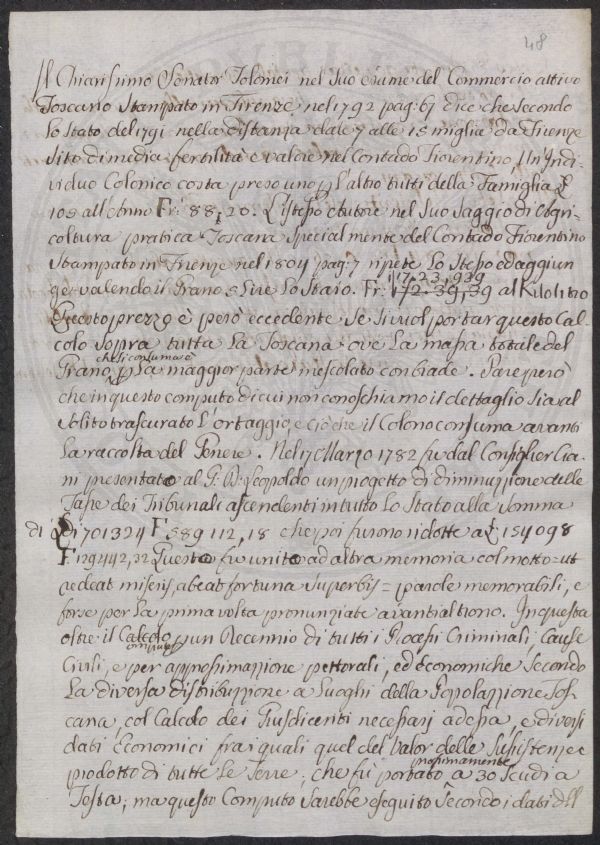 48
Il Chiarissimo Senator Tolomei nel suo esame del Commercio attivo
Toscano stampato in Firenze nel 1792 pag: 67 dice che secondo
lo stato del 1791 nella distanza dale 7 alle 15 miglia da Firenze
sito di media fertilità e valore nel Contado Fiorentino, Un Indi-
viduo Colonico costa preso uno p l'altro tutti della Famiglia £
105 all'Anno Fr: 88,20. L'istesso Autore nel suo saggio di Agri-
coltura pratica Toscana specialmente del Contado Fiorentino
stampato in Firenze nel 1804 pag: 7 ripete lo stesso ed aggiun
ge valendo il Grano 5 Lire lo staio. Fr: 17.23,939
172.39,39 al Kilolitro
Questo prezzo è però eccedente se si vuol portar questo Cal-
colo sopra tutta la Toscana ove la massa totale del
Grano che si consuma è p la maggior parte mescolato con biade. Pare però
che in questo computo di cui non conoschiamo il dettaglio sia al
solito trascurato l'ortaggio, e ciò che il Colono consuma avanti
la raccolta del Genere. Nel 17 Marzo 1782 fu dal Consiglier Cia-
ni presentato al G: D: Leopoldo un progetto di diminuzione delle
Tasse dei Tribunali ascendenti in tutto lo Stato alla somma
di £ di 701324 F 589 112,18 che poi furono ridotte a £ 154098
F 129442,32 Questo fu unito ad altra memoria col motto = ut
redeat miseris, abeat fortuna superbis = parole memorabili, e
forse per la prima volta pronunziate avanti al trono. In questa
oltre il Calcolo computo p un Decennio di tutti i Processi Criminali, Cause
Civili, e per approssimazione pettorali, ed Economiche secondo
la diversa distribuzione a Luoghi della Popolazione Tos-
cana, col Calcolo dei Giusdicenti necessarj ad essa, e diversi
dati Economici fra i quali quel del valor delle sussistenze e
prodotto di tutte le Terre, che fù portato prossimamente a 30 scudi a
Testa; ma questo Computo sarebbe eseguito secondo i dati dell